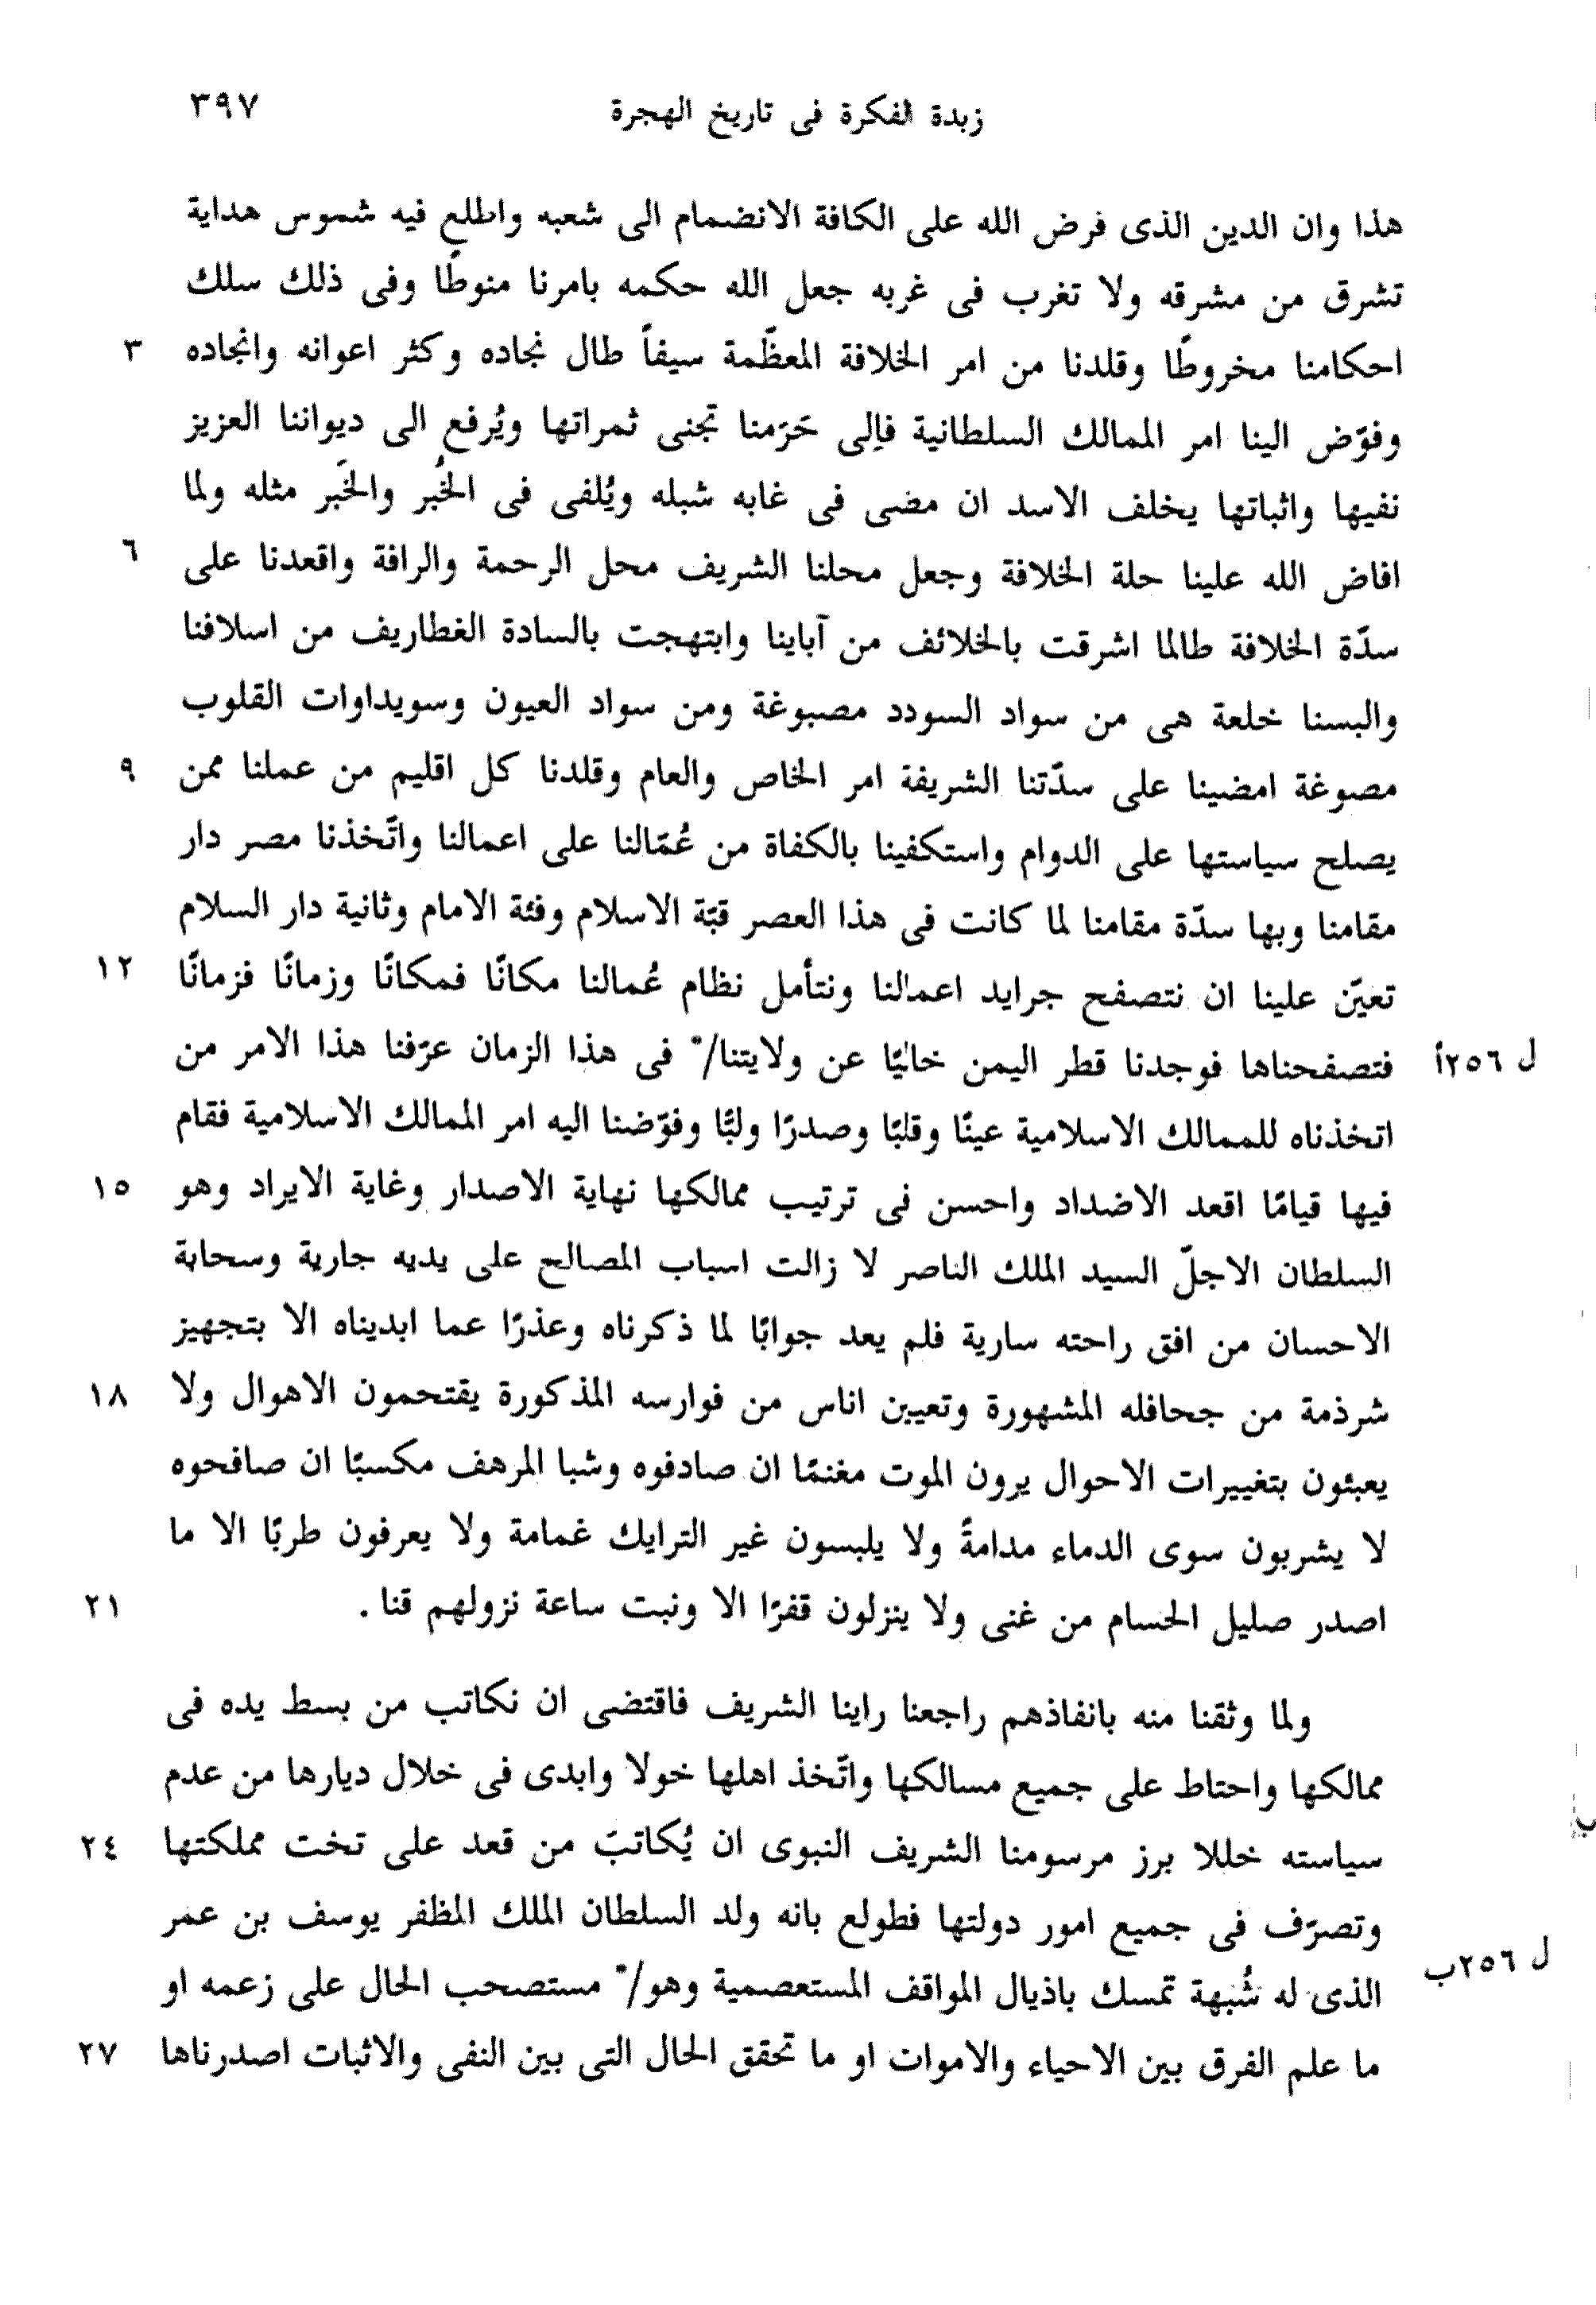 زبدة الفكرة فى تاريخ الهجرة ٣٩٧
هذا وان الدين الذى فرض الله على الكافة الانضمام الى شعبه واطلع فيه شموس هداية
تشرق من مشرقه ولا تغرب فى غربه جعل الله حكمه بامرنا منوطًا وفى ذلك سلك
احكامنا مخروطًا وقلدنا من امر الخلافة المعظّمة سيفاً طال نجاده وكثر اعوانه وانجاده ٣
وفوّض الينا امر الممالك السلطانية فإلى حَرَمنا تجنى ثمراتها ويُرفع الى ديواننا العزيز
نفيها واثباتها يخلف الاسد ان مضى فى غابه شبله ويُلفى فى الخُبر والخَبر مثله ولما
افاض الله علينا حلة الخلافة وجعل محلنا الشريف محل الرحمة والرافة واقعدنا على ٦
سدّة الخلافة طالما اشرقت بالخلائف من آباينا وابتهجت بالسادة الغطاريف من اسلافنا
والبسنا خلعة هى من سواد السودد مصبوغة ومن سواد العيون وسويداوات القلوب
مصوغة امضينا على سدّتنا الشريفة امر الخاص والعام وقلدنا كل اقليم من عملنا ممن ٩
يصلح سياستها على الدوام واستكفينا بالكفاة من عُمّالنا على اعمالنا واتّخذنا مصر دار
مقامنا وبها سدّة مقامنا لما كانت فى هذا العصر قبّة الاسلام وفئة الامام وثانية دار السلام
تعيّن علينا ان نتصفح جرايد اعمالنا ونتأمل نظام عُمالنا مكانًا فمكانًا وزمانًا فزمانًا ١٢
فتصفحناها فوجدنا قطر اليمن خاليًا عن ولايتنا/* فى هذا الزمان عرّفنا هذا الامر من ل ٢٥٦أ
اتخذناه للممالك الاسلامية عينًا وقلبًا وصدرًا ولبًّا وفوّضنا اليه امر الممالك الاسلامية فقام
فيها قيامًا اقعد الاضداد واحسن فى ترتيب ممالكها نهاية الاصدار وغاية الايراد وهو ١٥
السلطان الاجلّ السيد الملك الناصر لا زالت اسباب المصالح على يديه جارية وسحابة
الاحسان من افق راحته سارية فلم يعد جوابًا لما ذكرناه وعذرًا عما ابديناه الا بتجهيز
شرذمة من جحافله المشهورة وتعيين اناس من فوارسه المذكورة يقتحمون الاهوال ولا ١٨
يعبئون بتغييرات الاحوال يرون الموت مغنمًا ان صادفوه وشبا المرهف مكسبًا ان صافحوه
لا يشربون سوى الدماء مدامةً ولا يلبسون غير الترايك غمامة ولا يعرفون طربًا الا ما
اصدر صليل الحسام من غنى ولا ينزلون قفرًا الا ونبت ساعة نزولهم قنا . ٢١
ولما وثقنا منه بانفاذهم راجعنا راينا الشريف فاقتضى ان نكاتب من بسط يده فى
ممالكها واحتاط على جميع مسالكها واتّخذ اهلها خولا وابدى فى خلال ديارها من عدم
سياسته خللا برز مرسومنا الشريف النبوى ان يُكاتبَ من قعد على تخت مملكتها ٢٤
وتصرّف فى جميع امور دولتها فطولع بانه ولد السلطان الملك المظفر يوسف بن عمر
الذى له شُبهة تمسك باذيال المواقف المستعصمية وهو/* مستصحب الحال على زعمه او ل ٢٥٦ب
ما علم الفرق بين الاحياء والاموات او ما تحقق الحال التى بين النفى والاثبات اصدرناها ٢٧